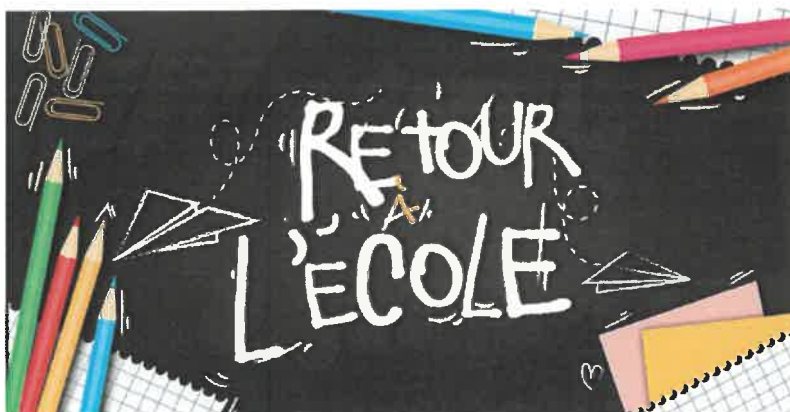 RETOUR
À
L'ÉCOLE